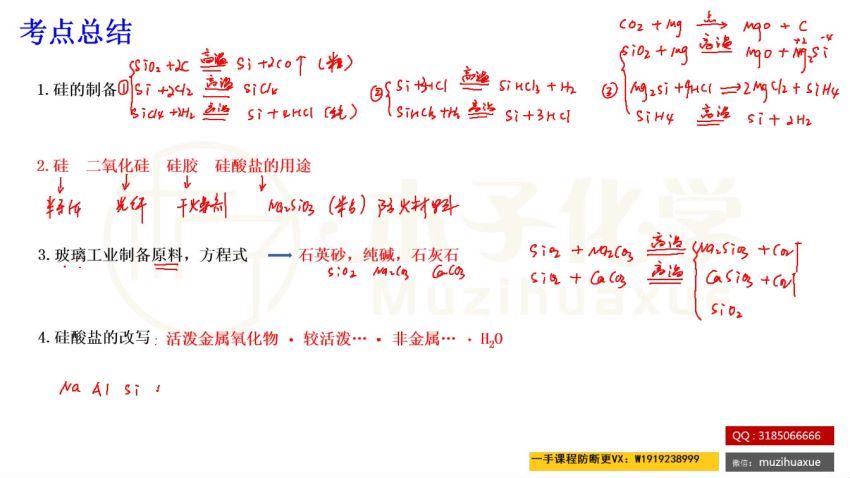 考点总结
CO2 + Mg 点燃 MgO + C
1.硅的制备
① SiO2 + 2C 高温 Si + 2CO↑ (粗)
Si + 2Cl2 高温 SiCl4
SiCl4 + 2H2 高温 Si + 4HCl (纯)
② Si + 3HCl 高温 SiHCl3 + H2
SiHCl3 + H2 高温 Si + 3HCl
③ SiO2 + Mg 高温 MgO + Mg2Si +2 -4
Mg2Si + 4HCl → 2MgCl2 + SiH4
SiH4 高温 Si + 2H2
2.硅 二氧化硅 硅胶 硅酸盐的用途
半导体 光纤 干燥剂 Na2SiO3 (粘) 防火材料
3.玻璃工业制备原料，方程式 → 石英砂，纯碱，石灰石
SiO2 Na2CO3 CaCO3
SiO2 + Na2CO3 高温 Na2SiO3 + CO2↑
SiO2 + CaCO3 高温 CaSiO3 + CO2↑
SiO2
4.硅酸盐的改写：活泼金属氧化物 · 较活泼… · 非金属… · H2O
Na Al Si :
木子化学
Muzihuaxue
QQ : 3185066666
一手课程防断更VX：W1919238999
微信： muzihuaxue